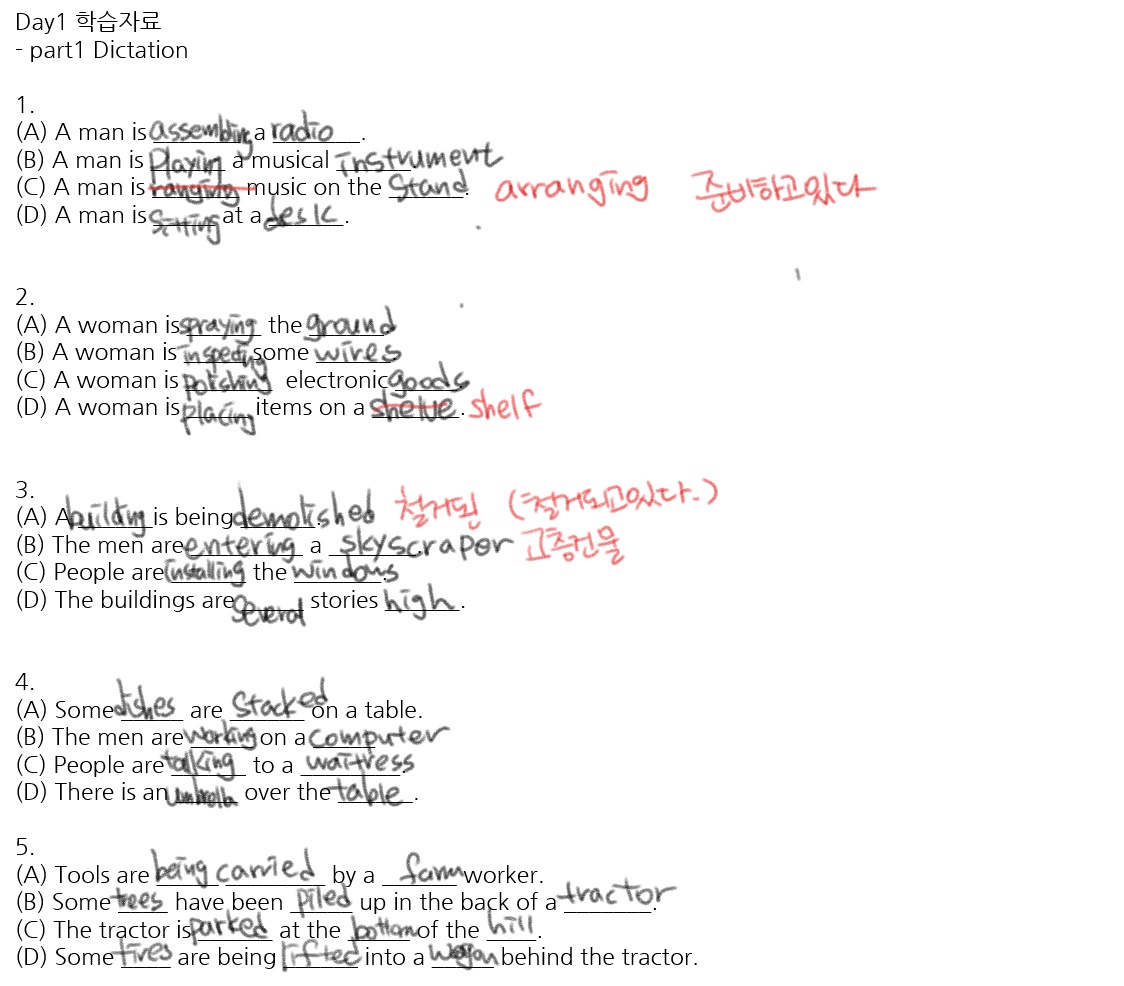 Day1 학습자료
- part1 Dictation
1.
(A) A man is assembling a radio.
(B) A man is playing a musical instrument
(C) A man is ranging music on the stand. arranging 준비하고있다
(D) A man is sitting at a desk.
2.
(A) A woman is spraying the ground
(B) A woman is inspecting some wires
(C) A woman is polishing electronic goods
(D) A woman is placing items on a shelve. shelf
3.
(A) A building is being demolished. 철거된 (철거되고있다.)
(B) The men are entering a skyscraper 고층건물
(C) People are installing the windows.
(D) The buildings are several stories high.
4.
(A) Some dishes are stacked on a table.
(B) The men are working on a computer
(C) People are talking to a waitress.
(D) There is an umbrella over the table.
5.
(A) Tools are being carried by a farm worker.
(B) Some trees have been piled up in the back of a tractor.
(C) The tractor is parked at the bottom of the hill.
(D) Some tires are being lifted into a wagon behind the tractor.